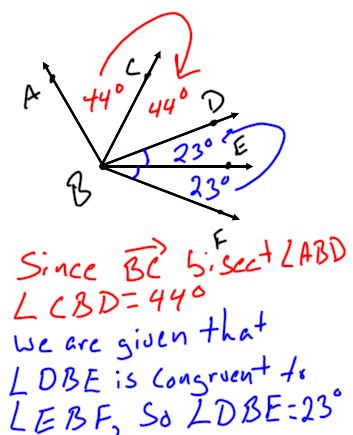 C
A
44°
44°
D
23°
E
B
23°
F
Since BC bisect ∠ABD
∠CBD=44°
We are given that
∠DBE is congruent to
∠EBF, So ∠DBE=23°